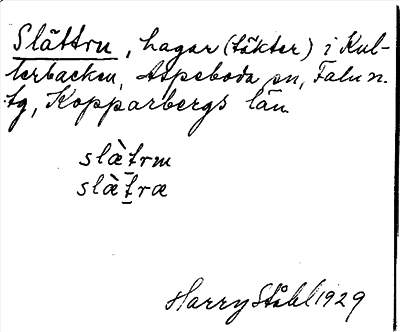 Slättru, hagar (täkter) i Kul-
lerbacken, Aspeboda sn, Falu n.
tg, Kopparbergs län.
slæ̀t̠rm
slæ̀t̠ræ
Harry Ståhl 1929